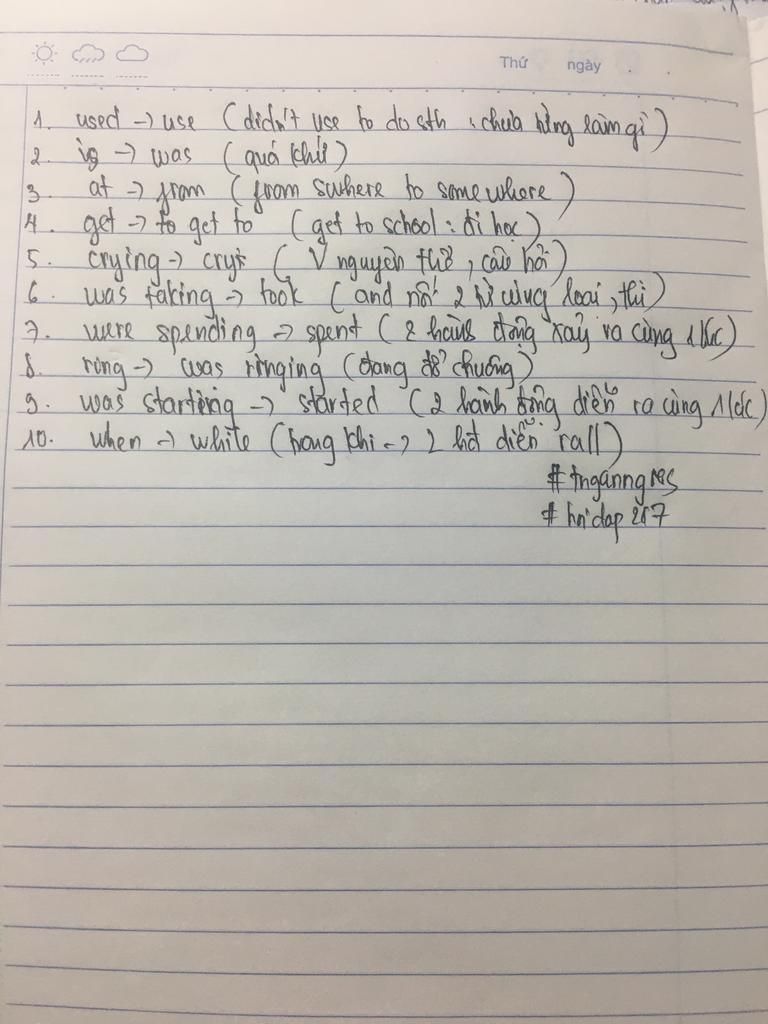 Thứ ngày
1. used → use (didn't use to do sth : chưa từng làm gì)
2. is → was (quá khứ)
3. at → from (from swhere to somewhere)
4. get → to get to (get to school : đi học)
5. crying → cry (V nguyên thể, câu hỏi)
6. was taking → took (and nối 2 từ cùng loại, thì)
7. were spending → spent (2 hành động xảy ra cùng 1 lúc)
8. ring → was ringing (đang đổ chuông)
9. was starting → started (2 hành động diễn ra cùng 1 lúc)
10. when → while (trong khi → 2 hđ diễn ra //)
# tnganng
# hoidap247